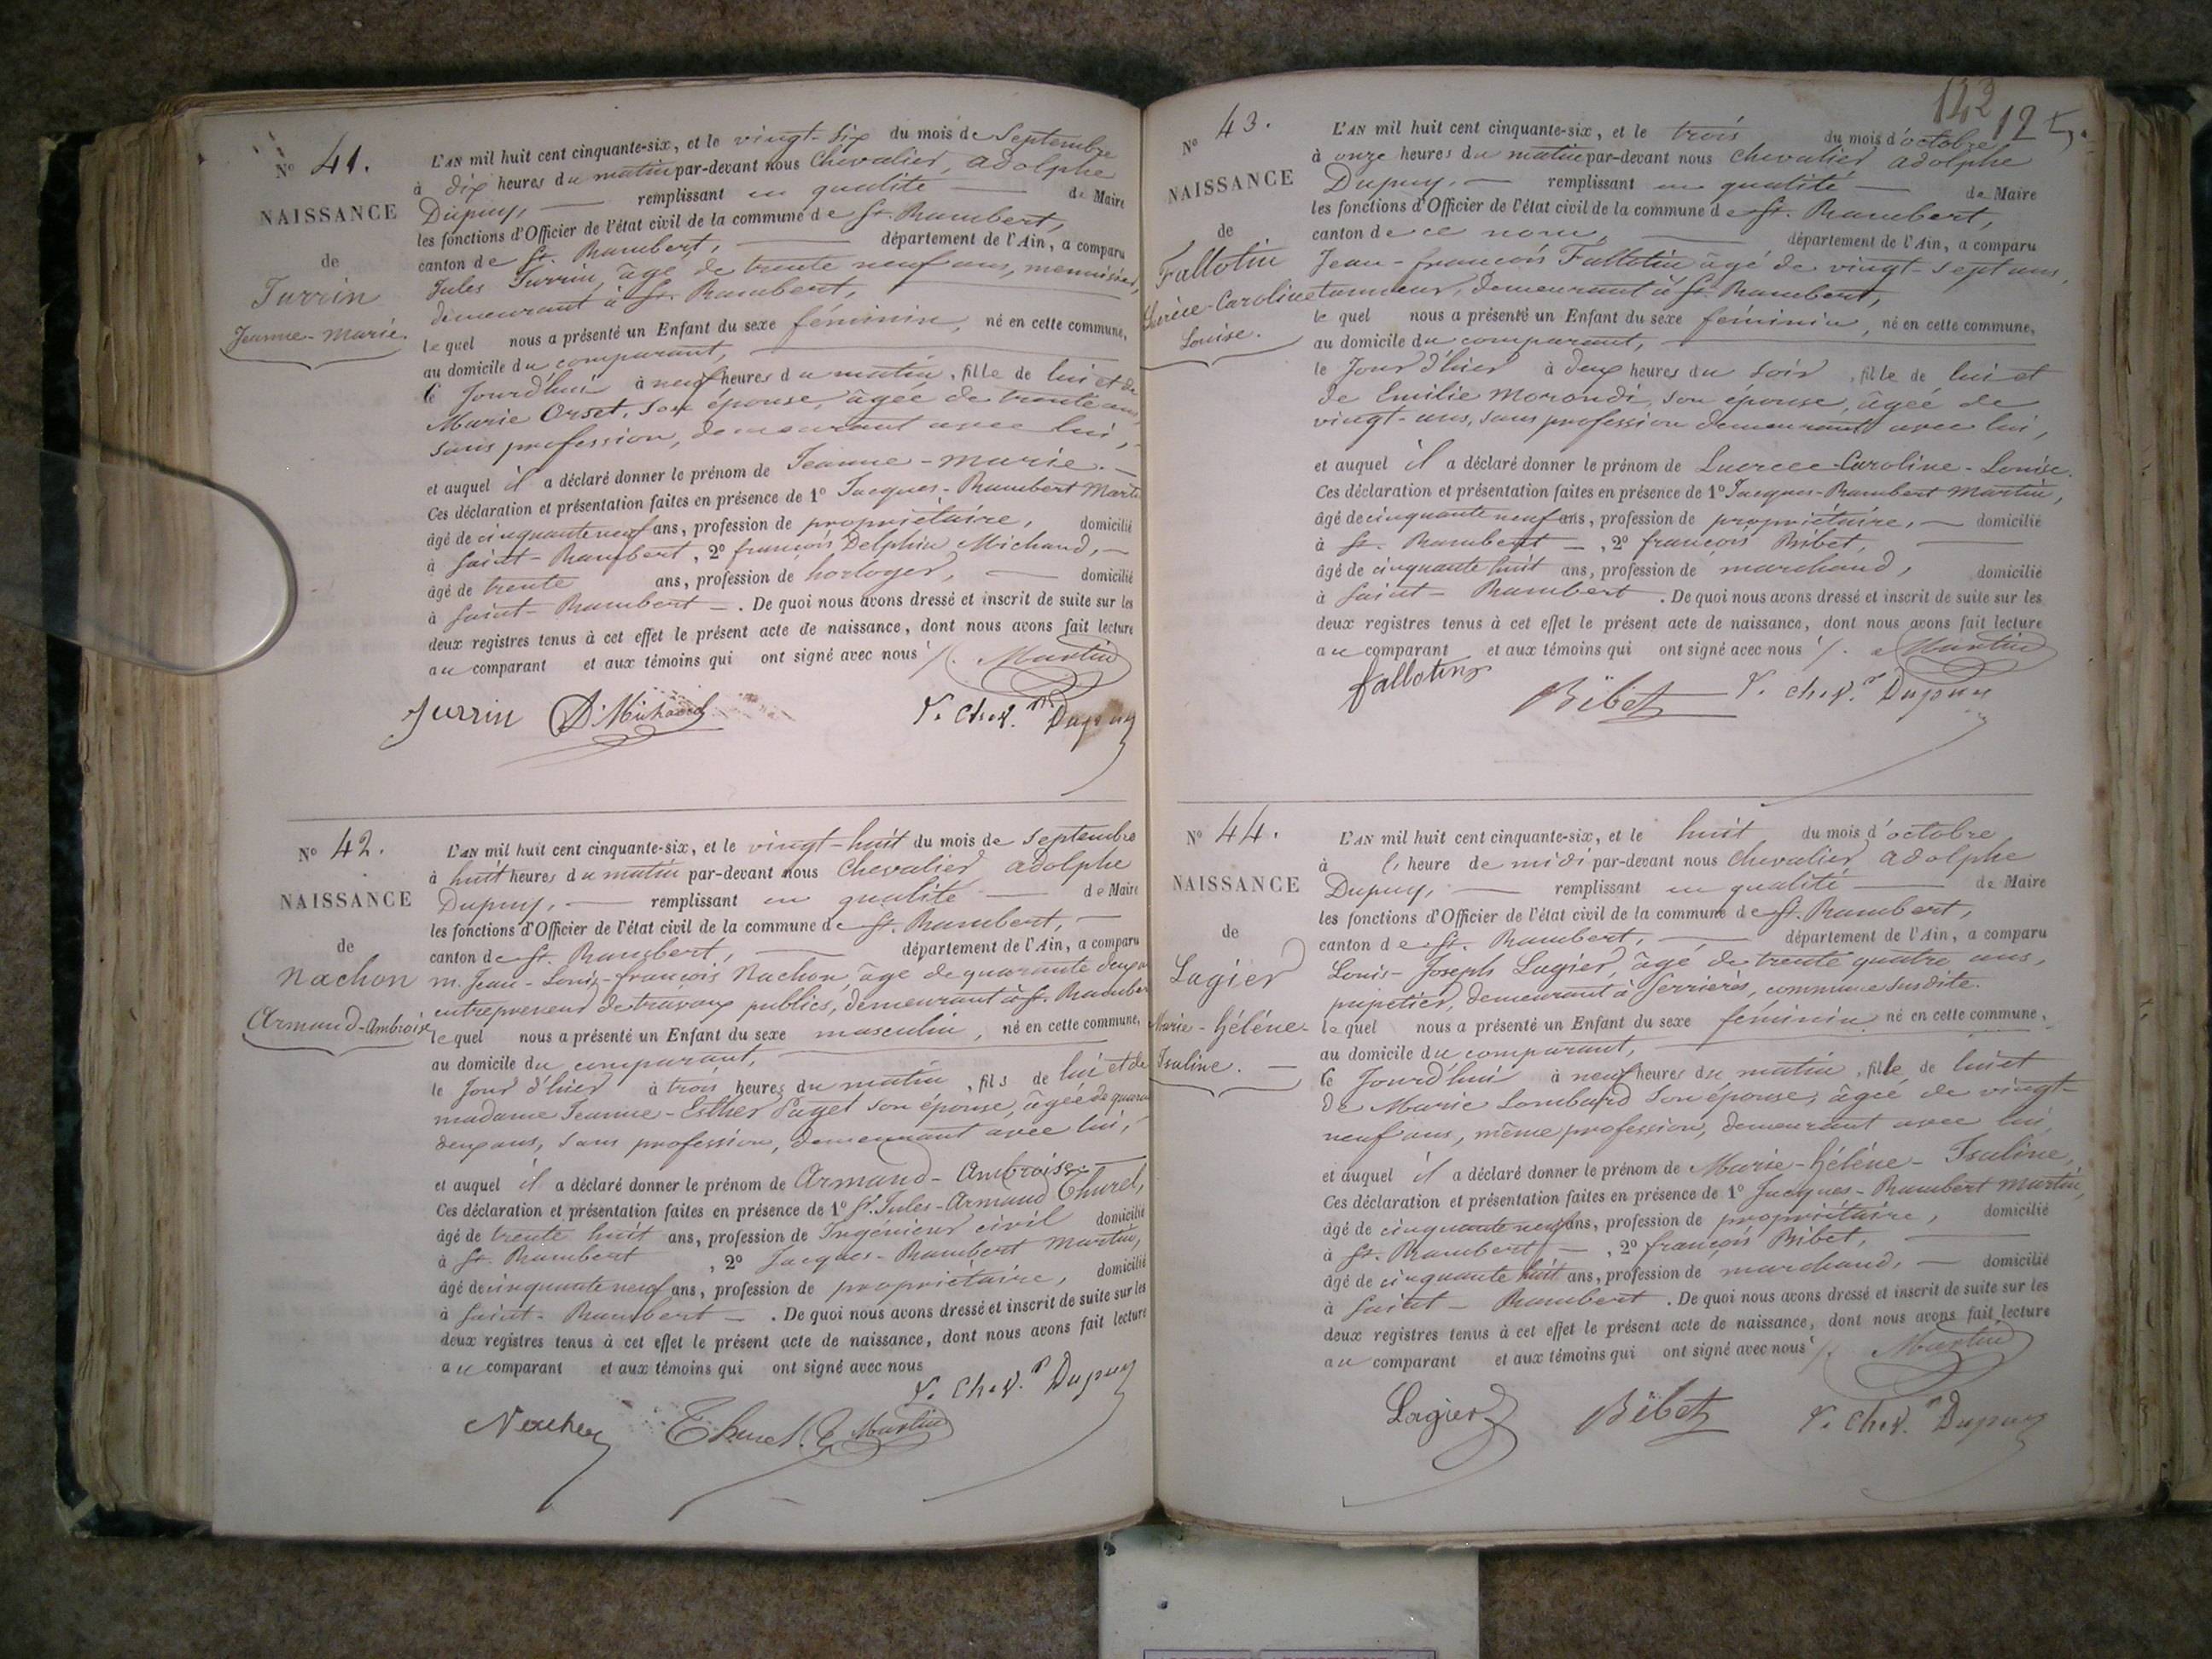 N° 41.
NAISSANCE
de
Jurrin
Jeanne-Marie.
L'AN mil huit cent cinquante-six, et le vingt-six du mois de Septembre
à dix heures du matin par-devant nous Chevalier, Adolphe
Dupuy, — remplissant en qualité — de Maire
les fonctions d'Officier de l'état civil de la commune de St. Rambert,
canton de St. Rambert, — département de l'Ain, a comparu
Jules Jurrin, âgé de trente neuf ans, menuisier,
demeurant à St. Rambert,
lequel nous a présenté un Enfant du sexe féminin, né en cette commune,
au domicile du comparant,
ce Jourd'hui à neuf heures du matin, fille de lui et de
Marie Orset, son épouse, âgée de trente ans,
sans profession, demeurant avec lui,
et auquel il a déclaré donner le prénom de Jeanne-Marie. —
Ces déclaration et présentation faites en présence de 1° Jacques-Rambert Martin
âgé de cinquante neuf ans, profession de propriétaire, domicilié
à Saint-Rambert, 2° françois Delphin Michaud, —
âgé de trente ans, profession de horloger, — domicilié
à Saint-Rambert —. De quoi nous avons dressé et inscrit de suite sur les
deux registres tenus à cet effet le présent acte de naissance, dont nous avons fait lecture
au comparant et aux témoins qui ont signé avec nous /. Martin
Jurrin D. Michaud V. Chev.r Dupuy
N° 42.
NAISSANCE
de
Nachon
Armand-Ambroise
L'AN mil huit cent cinquante-six, et le vingt-huit du mois de Septembre
à huit heures du matin par-devant nous Chevalier, Adolphe
Dupuy, — remplissant en qualité — de Maire
les fonctions d'Officier de l'état civil de la commune de St. Rambert, —
canton de St. Rambert, — département de l'Ain, a comparu
m. Jean-Louis-françois Nachon, âgé de quarante deux
entrepreneur de travaux publics, demeurant à St. Rambert
lequel nous a présenté un Enfant du sexe masculin, né en cette commune,
au domicile du comparant,
le Jour d'hier à trois heures du matin, fils de lui et de
madame Jeanne-Esther Paget son épouse, âgée de quarante
deux ans, sans profession, demeurant avec lui,
et auquel il a déclaré donner le prénom de Armand-Ambroise. —
Ces déclaration et présentation faites en présence de 1° Sr. Jules-Armand Thurel,
âgé de trente huit ans, profession de Ingénieur civil domicilié
à St. Rambert, 2° Jacques-Rambert Martin,
âgé de cinquante neuf ans, profession de propriétaire, domicilié
à Saint-Rambert —. De quoi nous avons dressé et inscrit de suite sur les
deux registres tenus à cet effet le présent acte de naissance, dont nous avons fait lecture
au comparant et aux témoins qui ont signé avec nous
V. Chev.r Dupuy
Nachon Thurel Martin
142
125.
N° 43.
NAISSANCE
de
Fallotin
Lucrèce-Caroline
Louise.
L'AN mil huit cent cinquante-six, et le trois du mois d'octobre
à onze heures du matin par-devant nous Chevalier, Adolphe
Dupuy, — remplissant en qualité — de Maire
les fonctions d'Officier de l'état civil de la commune de St. Rambert,
canton de ce nom, — département de l'Ain, a comparu
Jean-françois Fallotin âgé de vingt-sept ans,
tanneur, demeurant à St. Rambert,
lequel nous a présenté un Enfant du sexe féminin, né en cette commune,
au domicile du comparant,
le Jour d'hier à deux heures du soir, fille de lui et
de Emilie Morondi, son épouse, âgée de
vingt-ans, sans profession demeurant avec lui,
et auquel il a déclaré donner le prénom de Lucrece-Caroline-Louise.
Ces déclaration et présentation faites en présence de 1° Jacques-Rambert Martin,
âgé de cinquante neuf ans, profession de propriétaire, — domicilié
à St. Rambert —, 2° françois Bibet,
âgé de cinquante huit ans, profession de marchand, domicilié
à Saint-Rambert. De quoi nous avons dressé et inscrit de suite sur les
deux registres tenus à cet effet le présent acte de naissance, dont nous avons fait lecture
au comparant et aux témoins qui ont signé avec nous /. Martin
fallotin Bibet V. Chev.r Dupuy
N° 44.
NAISSANCE
de
Lagier
Marie-Hélène-
Isaline. —
L'AN mil huit cent cinquante-six, et le huit du mois d'octobre
à l'heure de midi par-devant nous Chevalier, Adolphe
Dupuy, — remplissant en qualité — de Maire
les fonctions d'Officier de l'état civil de la commune de St. Rambert,
canton de St. Rambert, — département de l'Ain, a comparu
Louis-Joseph Lagier, âgé de trente quatre ans,
papetier, demeurant à Serrières, commune susdite.
lequel nous a présenté un Enfant du sexe féminin né en cette commune,
au domicile du comparant,
ce Jourd'hui à neuf heures du matin, fille de lui et
de Marie Lombard son épouse, âgée de vingt-
neuf ans, même profession, demeurant avec lui,
et auquel il a déclaré donner le prénom de Marie-Hélène-Isaline,
Ces déclaration et présentation faites en présence de 1° Jacques-Rambert Martin,
âgé de cinquante neuf ans, profession de propriétaire, domicilié
à St. Rambert —, 2° françois Bibet,
âgé de cinquante huit ans, profession de marchand, — domicilié
à Saint-Rambert. De quoi nous avons dressé et inscrit de suite sur les
deux registres tenus à cet effet le présent acte de naissance, dont nous avons fait lecture
au comparant et aux témoins qui ont signé avec nous /. Martin
Lagier Bibet V. Chev.r Dupuy